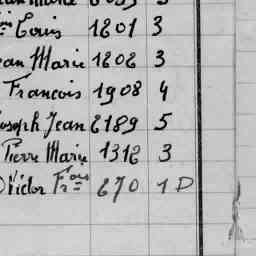 Marie 6055 3
in Louis 1201 3
ean Marie 1202 3
François 1908 4
oseph Jean 2189 5
Pierre Marie 1312 3
Victor Fois 670 1 D